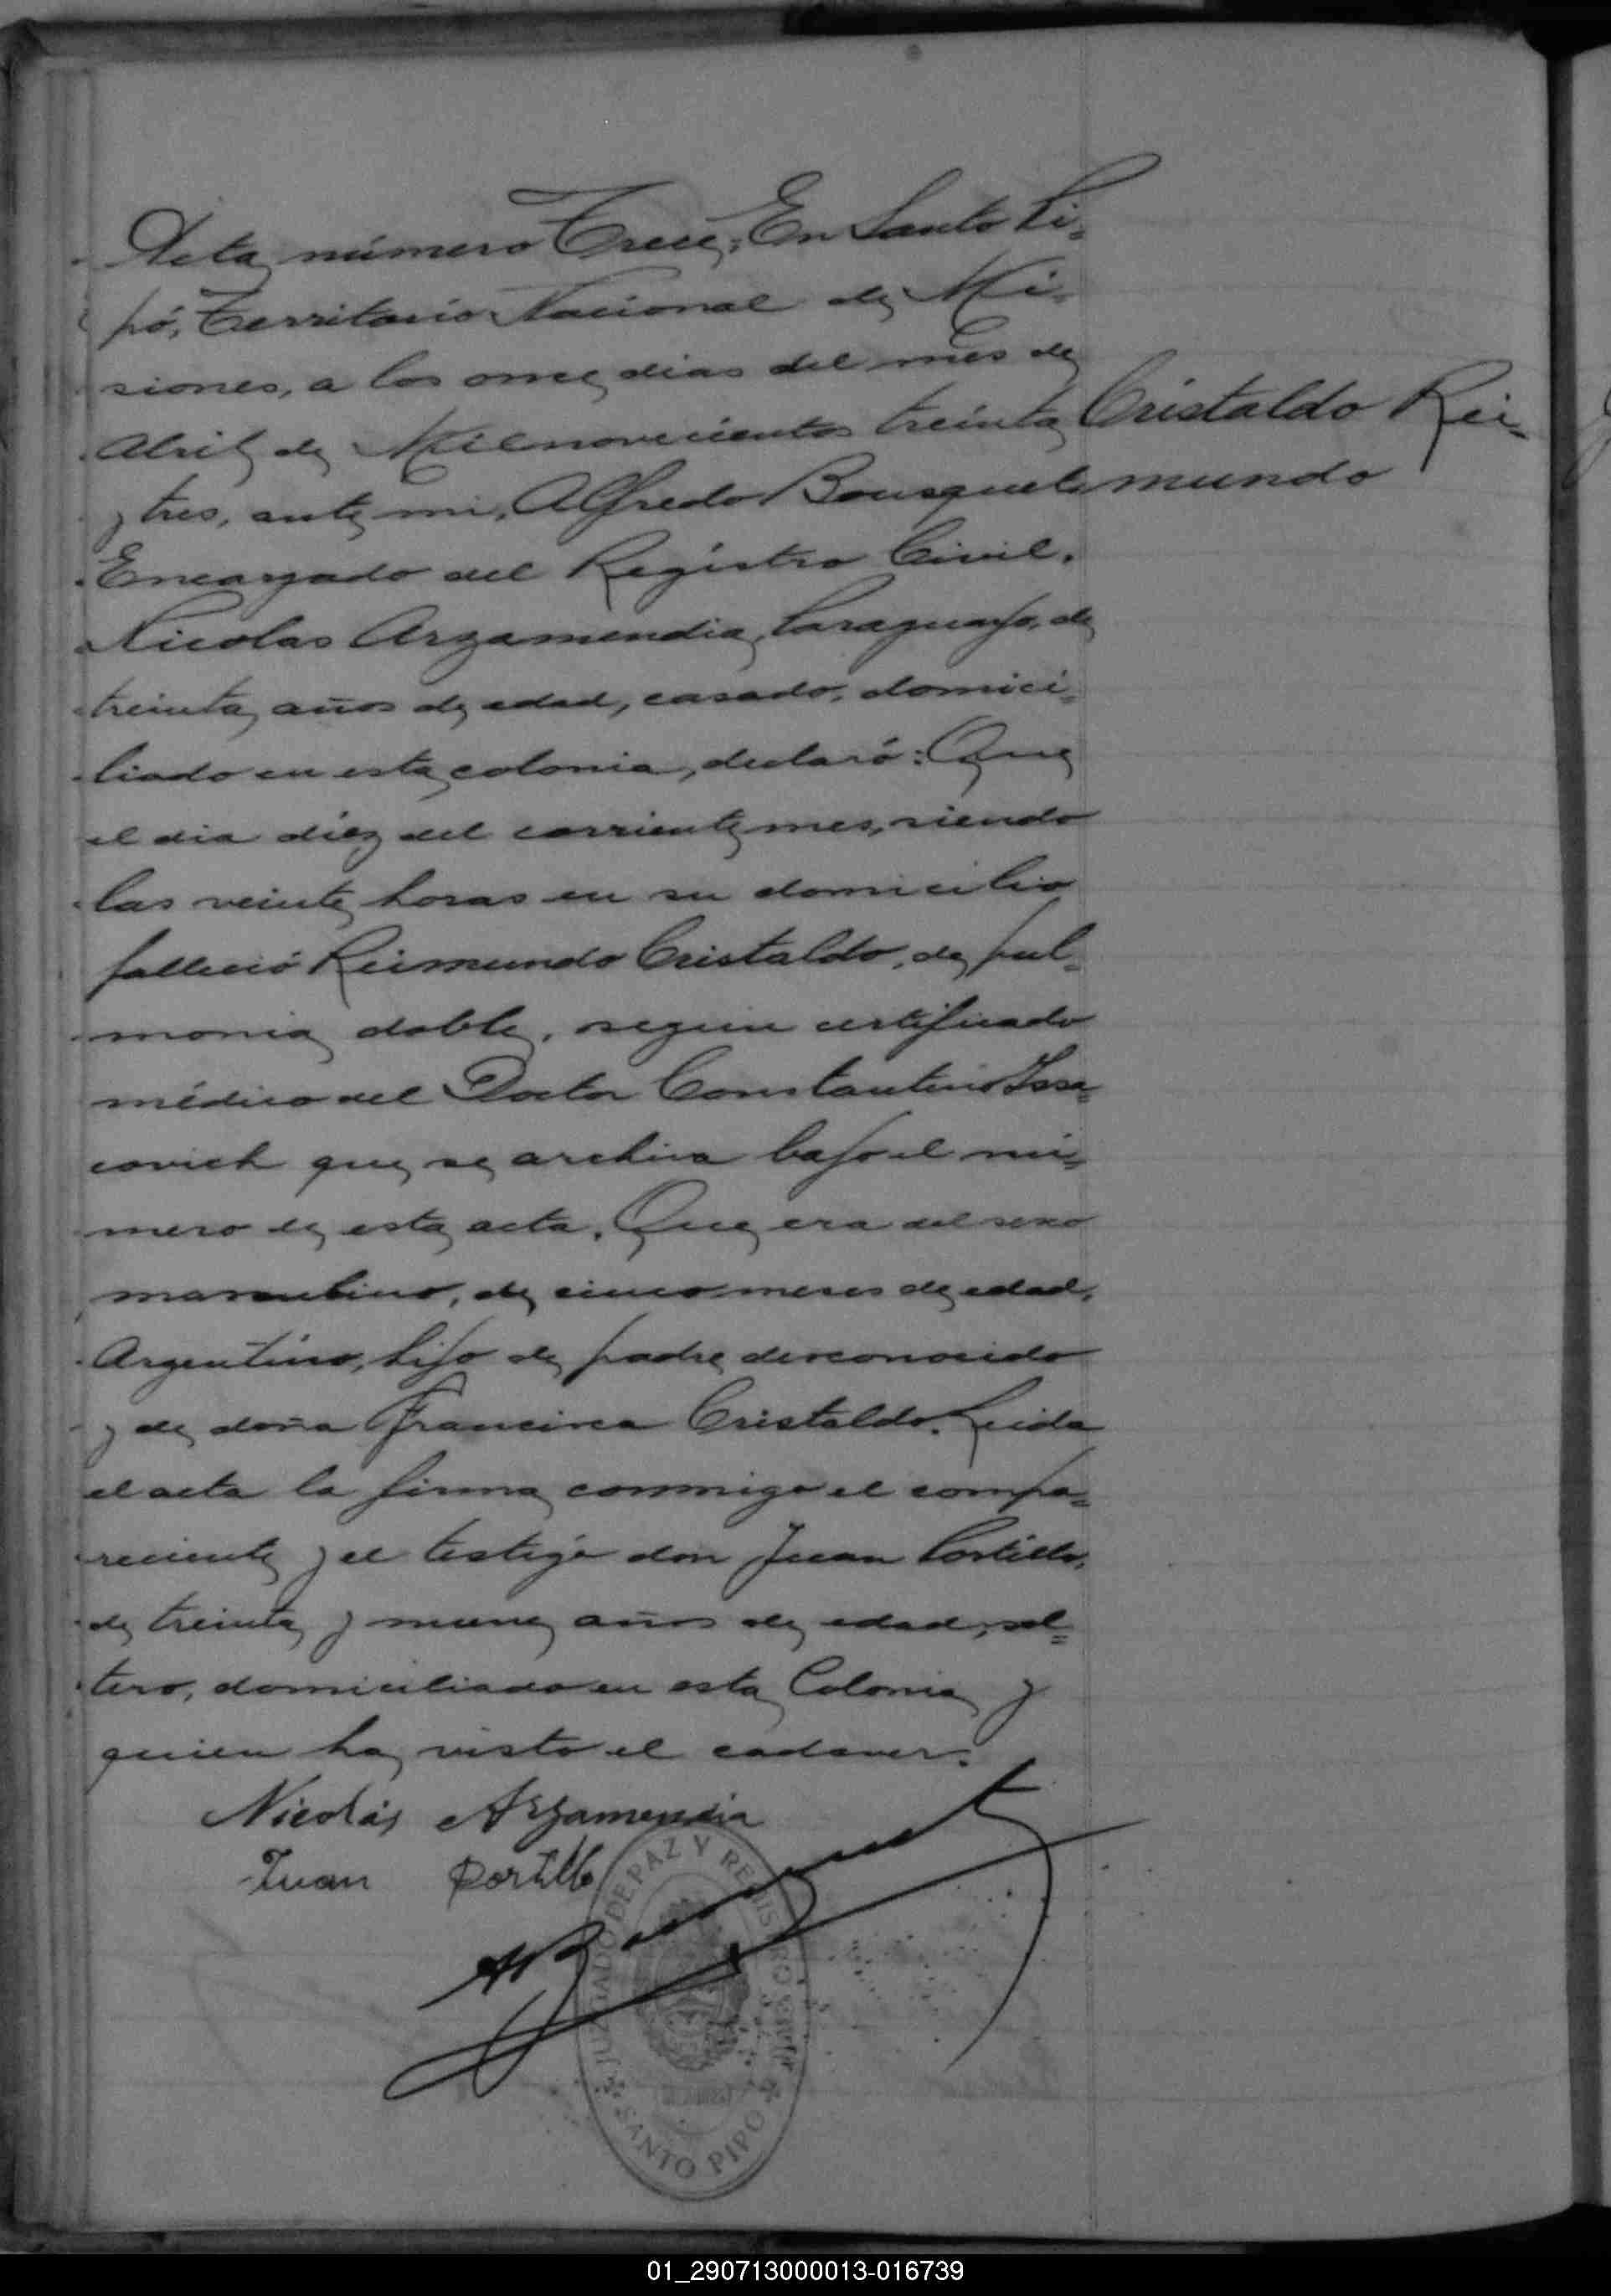 Acta número Trece: En Santo Pi=
pó, Territorio Nacional de Mi=
siones, a los once dias del mes de
Abril de Mil novecientos treinta
y tres, ante mi, Alfredo Bousquet
Encargado del Registro Civil.
Nicolas Arzamendia, Paraguayo, de
treinta años de edad, casado, domici=
liado en esta colonia, declaró: Que
el dia diez del corriente mes, siendo
las veinte horas en su domicilio
falleció Reimundo Cristaldo, de pul=
monia doble, segun certificado
médico del Doctor Constantino Issa=
covich que se archiva bajo el nú=
mero de esta acta. Que era del sexo
masculino, de cinco meses de edad,
Argentino, hijo de padre desconocido
y de doña Francisca Cristaldo. Leida
el acta la firma conmigo el compa=
reciente y el testigo don Juan Portillo,
de treinta y nueve años de edad, sol=
tero, domiciliado en esta Colonia y
quien ha visto el cadaver.
Cristaldo Rei=
mundo
Nicolás Arzamendia
Juan Portillo
ABousquet
JUZGADO DE PAZ Y REGISTRO CIVIL
SANTO PIPO
01_290713000013-016739